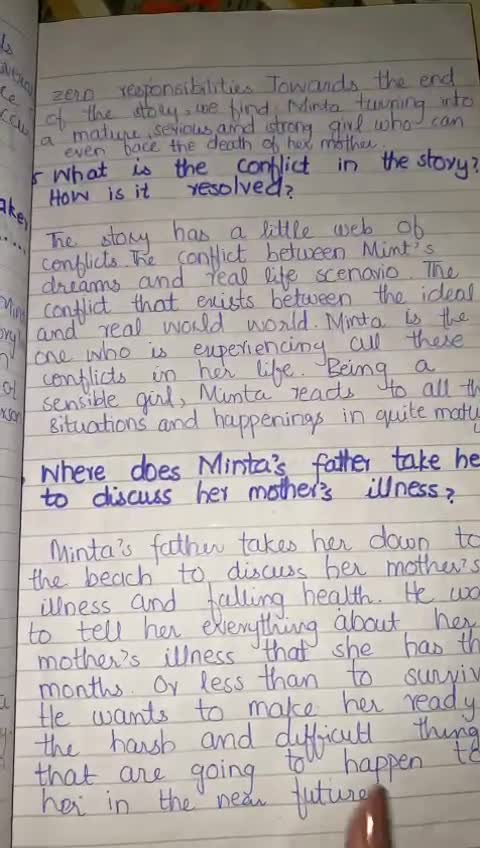 zero responsibilities Towards the end
of the story, we find Minta turning into
a mature, serious and strong girl who can
even face the death of her mother.
What is the conflict in the story?
How is it resolved?
The story has a little web of
conflicts. The conflict between Mint's
dreams and real life scenario. The
conflict that exists between the ideal
and real world world. Minta is the
one who is experiencing all these
conflicts in her life. Being a
sensible girl, Minta reads to all th
situations and happenings in quite matu
Where does Minta's father take he
to discuss her mother's illness?
Minta's father takes her down to
the beach to discuss her mother's
illness and falling health. He wa
to tell her everything about her
mother's illness that she has th
months. Or less than to surviv
He wants to make her ready
the harsh and difficult thing
that are going to happen to
her in the near future